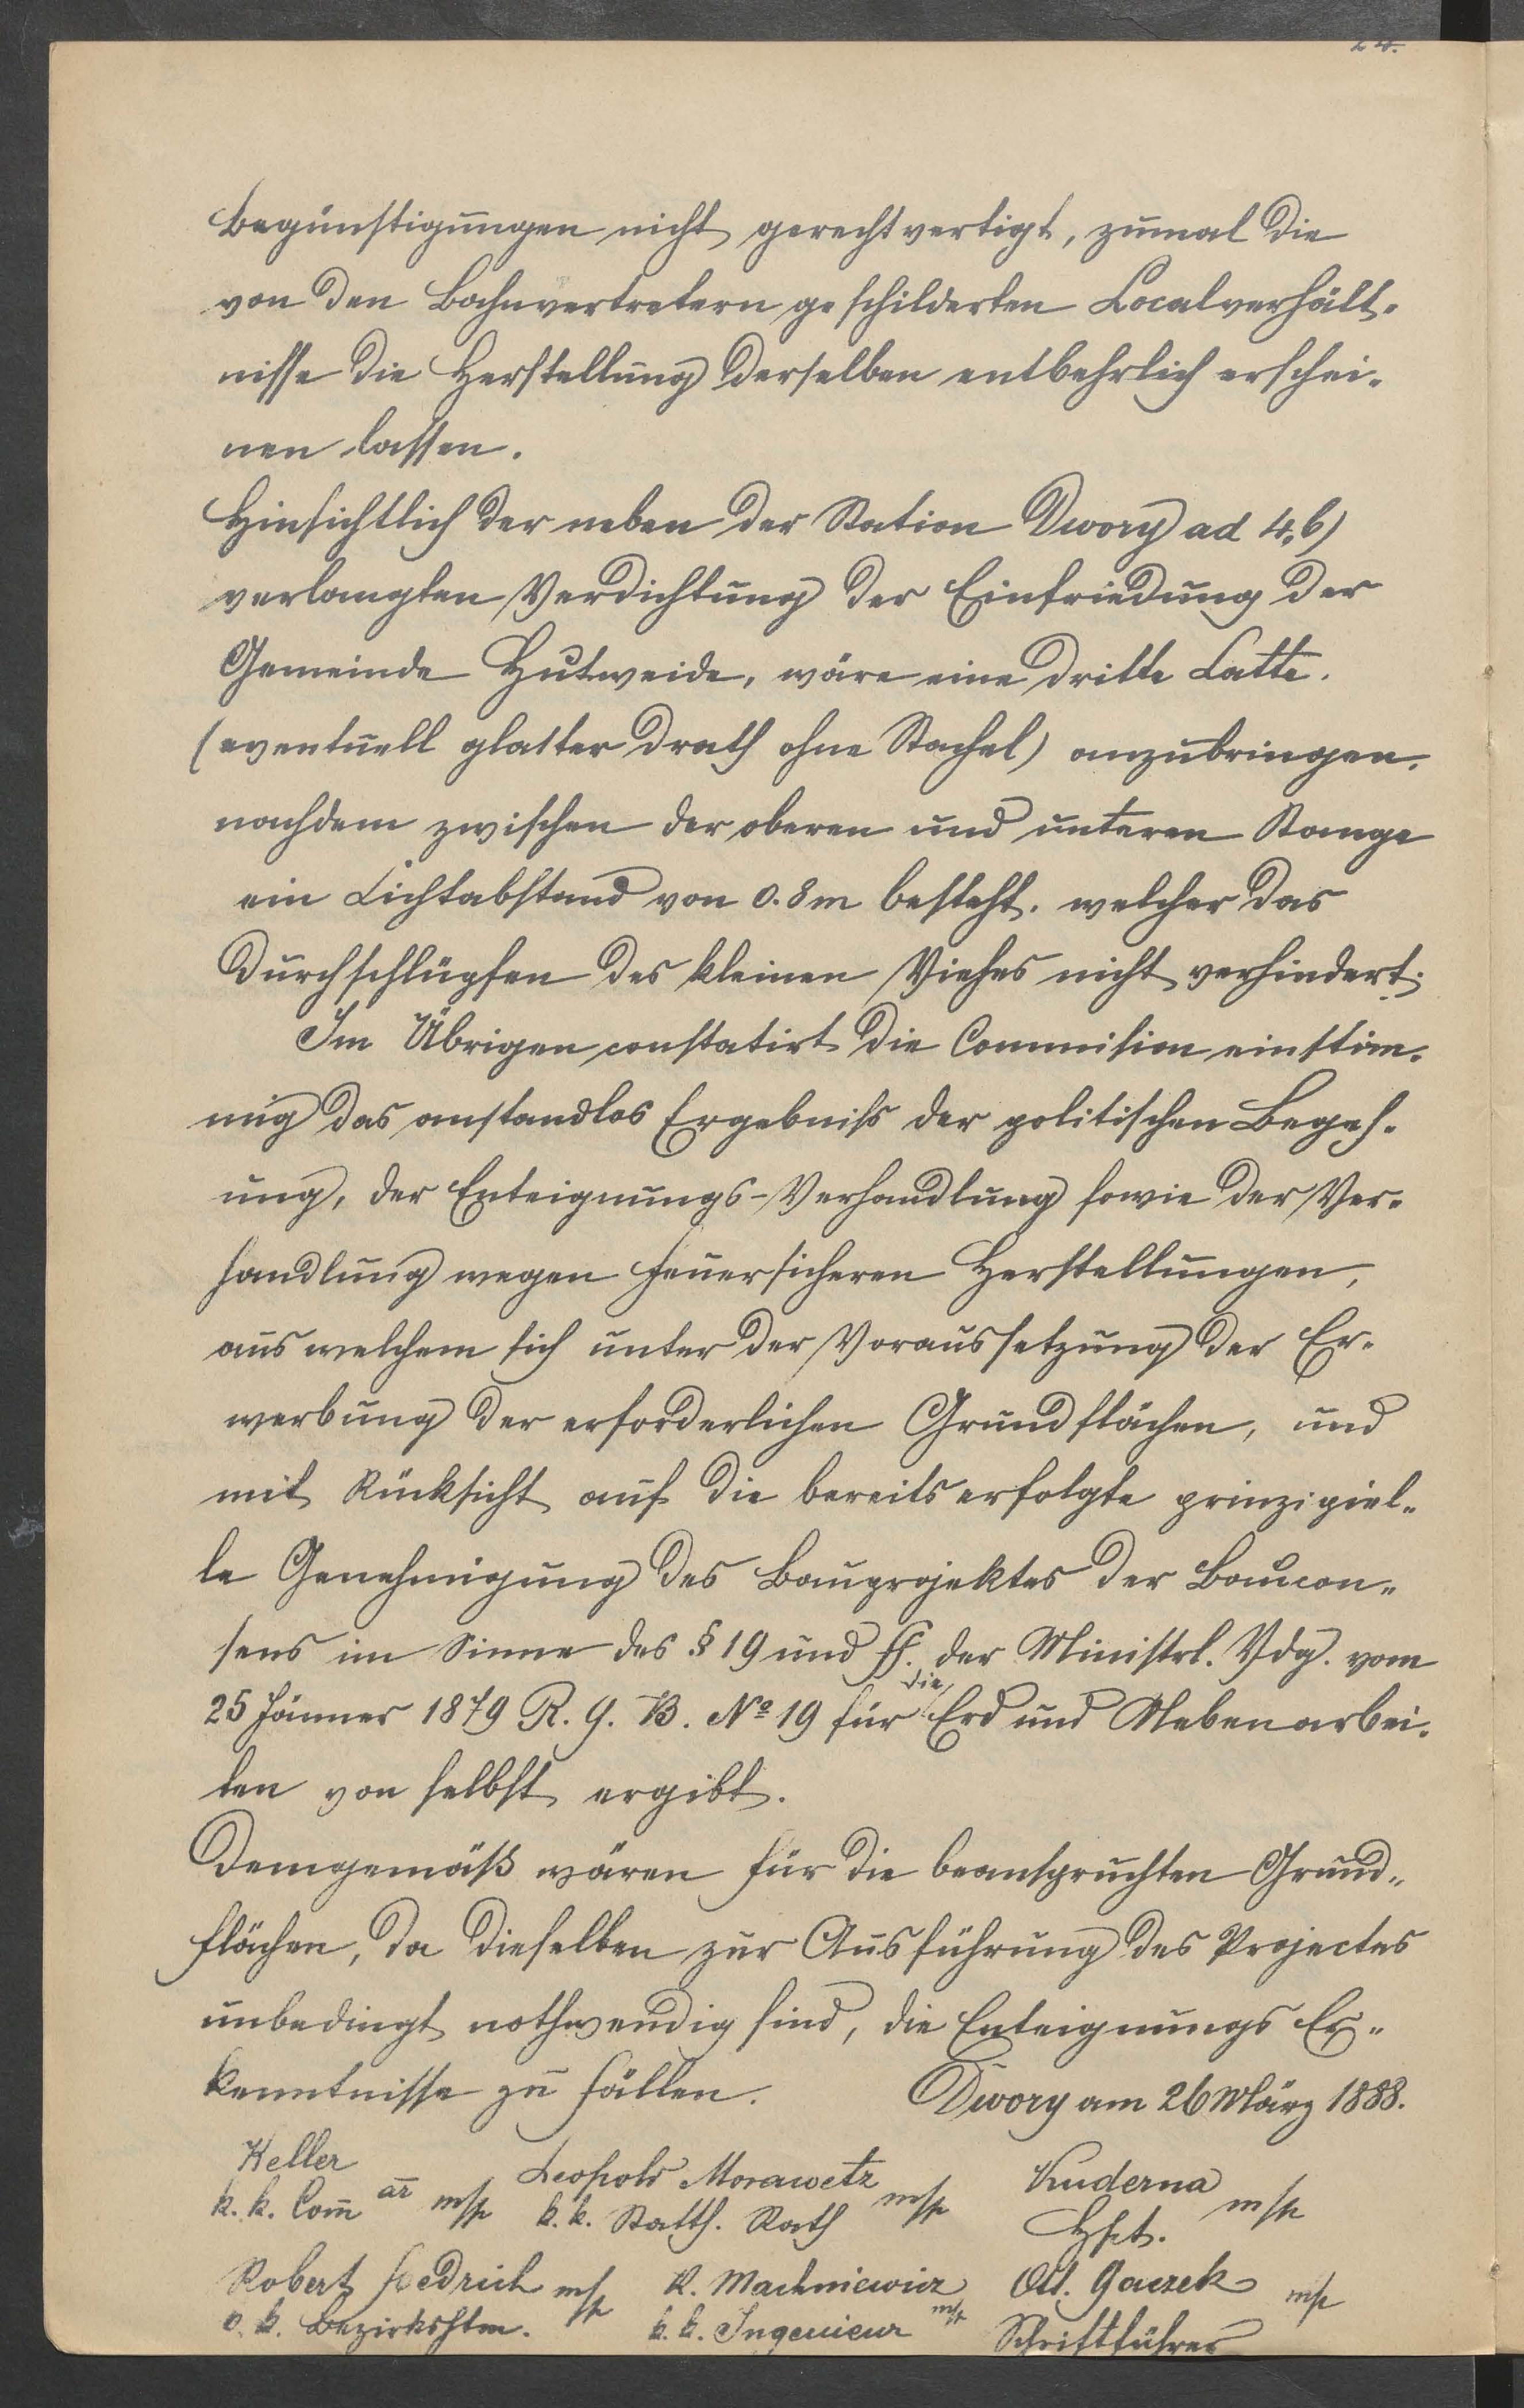 24.
Begünstigungen nicht gerechtvertigt, zumal die
von den Bahnvertretern geschilderten Localverhält-
nisse die Herstellung derselben entbehrlich erschei-
nen lassen.
Hinsichtlich der neben der Station Dwory ad 4, b)
verlangten Verdichtung der Einfriedung der
Gemeinde Hutweide, wäre eine dritte Latte.
(eventuell glatter Drath ohne Stachel) anzubringen,
nachdem zwischen der oberen und unteren Stange
ein Lichtabstand von 0.8m besteht, welcher das
Durchschlüpfen des kleinen Viehes nicht verhindert.
Im Übrigen constatirt die Commision einstim-
mig das anstandlos Ergebniss der politischen Begeh-
ung, der Enteignungs-Verhandlung sowie der Ver-
handlung wegen feuersicheren Herstellungen,
aus welchem sich unter der Voraussetzung der Er-
werbung der erforderlichen Grundflächen, und
mit Rücksicht auf die bereits erfolgte prinzipiel-
le Genehmigung des Bauprojektes der Baucon-
sens im Sinne des § 19 und ff. der Ministrl. Vdg. vom
25 Jänner 1879 R. G. B. No 19 für die Erd und Nebenarbei-
ten von selbst ergibt.
Demgemäß wären für die beanspruchten Grund-
flächen, da dieselben zur Ausführung des Projectes
unbedingt nothwendig sind, die Enteignungs Er-
kenntnisse zu fällen. Dwory am 26 März 1888.
Keller Leopold Morawetz Kuderna
k. k. Com̄ är m/p k. k. Statth. Rath m/p Hpt. m/p
Robert Hedrich m/p K. Machniewicz m/p Ott. Gaczek m/p
k. k. Bezirkshtm. k. k. Ingenieur Schriftführer